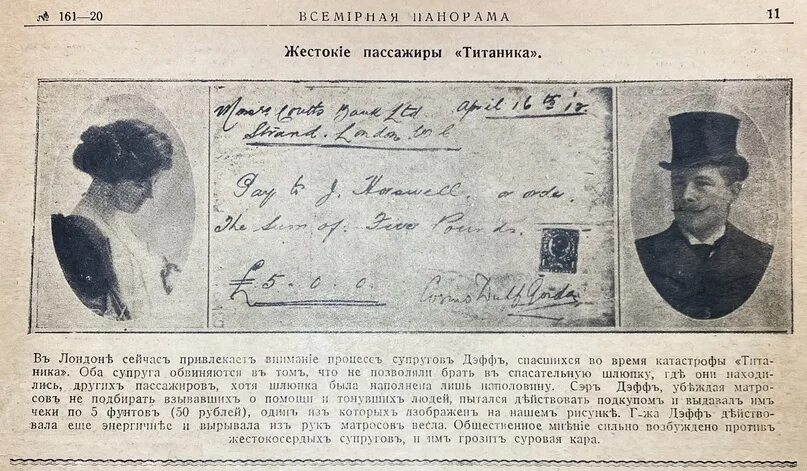 № 161—20 ВСЕМІРНАЯ ПАНОРАМА 11
Жестокіе пассажиры «Титаника».
Coutts Bank Ltd. April 16th 12
Strand. London
Pay to J. Horswell. or order.
The Sum of. Five Pounds.
£5. 0. 0.
Cosmo Duff Gordon
Въ Лондонѣ сейчасъ привлекаетъ вниманіе процессъ супруговъ Дэффъ, спасшихся во время катастрофы «Тита-
ника». Оба супруга обвиняются въ томъ, что не позволяли брать въ спасательную шлюпку, гдѣ они находи-
лись, другихъ пассажировъ, хотя шлюпка была наполнена лишь наполовину. Сэръ Дэффъ, убѣждая матро-
совъ не подбирать взывавшихъ о помощи и тонувшихъ людей, пытался дѣйствовать подкупомъ и выдавалъ имъ
чеки по 5 фунтовъ (50 рублей), одинъ изъ которыхъ изображенъ на нашемъ рисункѣ. Г-жа Дэффъ дѣйство-
вала еще энергичнѣе и вырывала изъ рукъ матросовъ весла. Общественное мнѣніе сильно возбуждено противъ
жестокосердыхъ супруговъ, и имъ грозитъ суровая кара.